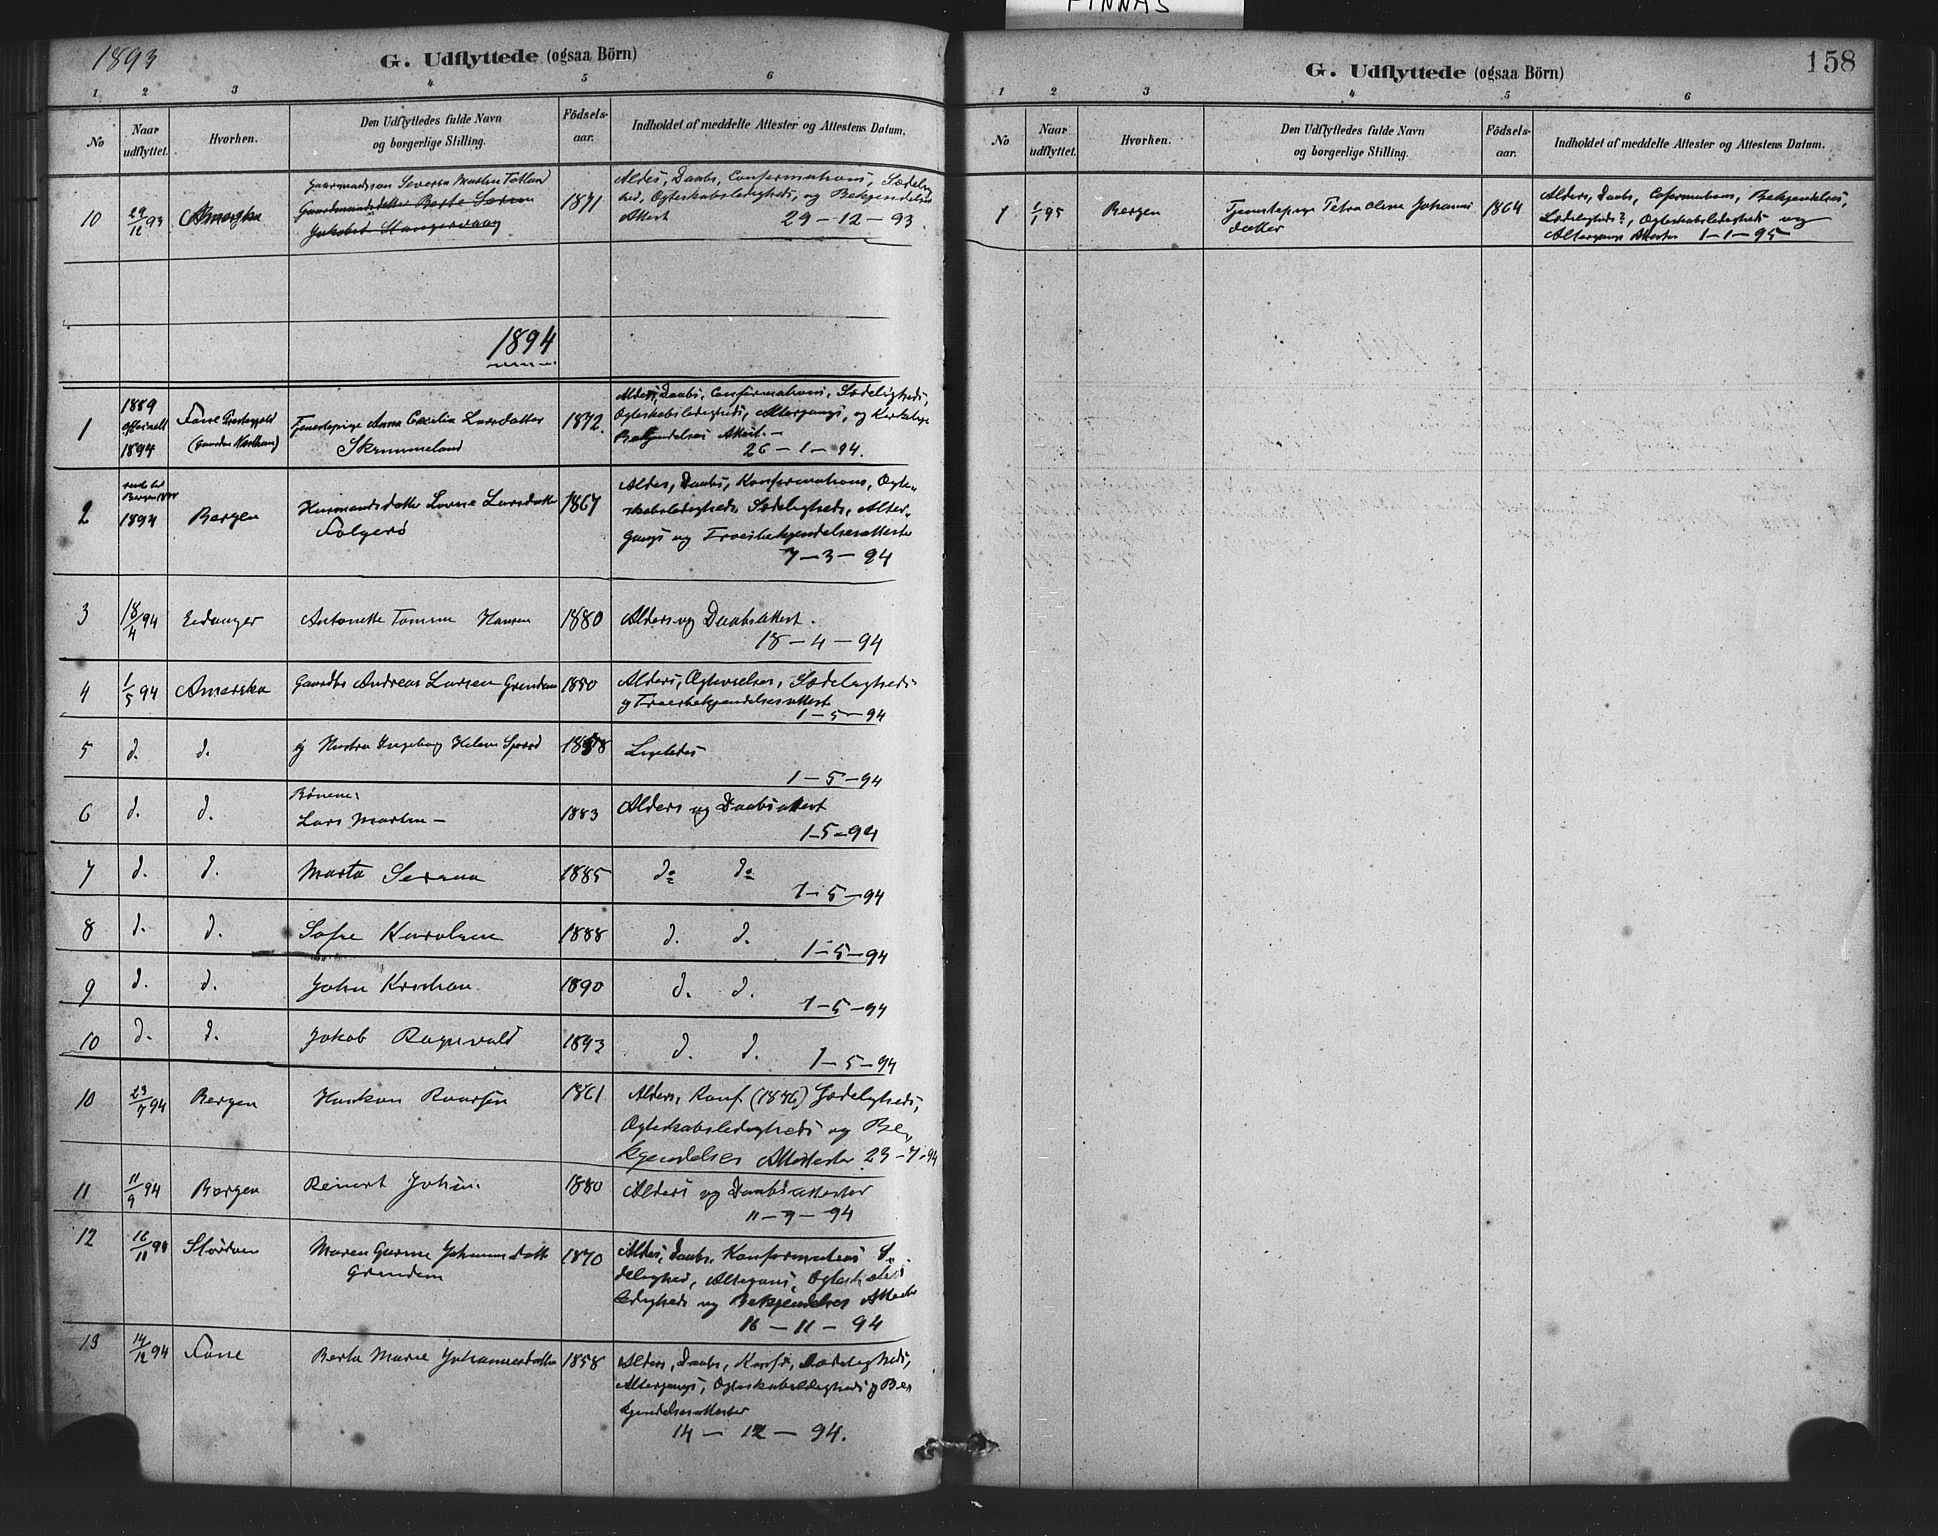 FINNÅS
1893
G. Udflyttede (ogsaa Börn)
1 2 3 4 5 6
No
Naar udflyttet.
Hvorhen.
Den Udflyttedes fulde Navn og borgerlige Stilling.
Födsels-aar.
Indholdet af meddelte Attester og Attestens Datum.
10 29/12 93 Amerika
Severin Martin
Gaardmandsdatter Berte
Jakobsd Stangervaag
1871
Alders, Daabs, Confirmations, Sædelig
hed, Ægteskabsledigheds, og Bekjendelses
Attest 29-12-93
1894
1 1889 1894 Fane
Tjenestepige Anna Cecilia Larsdatter
Skrummeland
1872.
Alders, Daabs, Confirmations, Sædeligheds,
Ægteskabsledigheds, Altergangs, og Kirkelige
Bekjendelses Attest. -
26-1-94.
2 1894 Bergen
Husmandsdatter Larsdatter
Folgerö
1867
Alders, Daabs, Konfirmations, Ægte-
skabsledigheds, Sædeligheds, Alter-
gangs og Troesbekjendelsesattester
7-3-94
3 18/4 94 Eidanger Antonette Hansen 1880 Alders og Daabsattest.
18-4-94
4 1/5 94 Amerika Andreas Larsen Grendem 1850 Alders, Sædeligheds
og Troesbekjendelsesattest
1-5-94
5 d. d. Hustru Ingeborg Helene 18 Ligeledes
1-5-94
6 d. d.
Börnene:
Lars Martin - 1883 Alders og Daabsattest
1-5-94
7 d. d. Marta Serina 1885 do do
1-5-94
8 d. d. Sofie Karoline 1888 d. d.
1-5-94
9 d. d. John Kristian 1890 d. d.
1-5-94
10 d. d. Jakob Ragnvald 1893 d. d.
1-5-94
10 23/7 94 Bergen Haakon Roarsen 1861
Alders, Konf. (1876) Sædeligheds,
Ægteskabsledigheds og Be-
kjendelses Attester 23-7-94
11 11/9 94 Bergen Reinert 1880 Alders og Daabsattester
11-9-94
12 16/11 94 Storden Maren Gurine Johannesdatter
Grendem
1870
Alders, Daabs, Konfirmations Sæ-
delighed, Altergangs, Ægteskabs
ledigheds og Bekjendelses Attester
16-11-94
13 14/12 94 Fane Berta Marie Johannesdatter 1858
Alders, Daabs, Konf., Sædeligheds,
Altergangs, Ægteskabsledigheds og Be
kjendelsesattester
14-12-94.
158
G. Udflyttede (ogsaa Börn)
1 2 3 4 5 6
No
Naar udflyttet.
Hvorhen.
Den Udflyttedes fulde Navn og borgerlige Stilling.
Födsels-aar.
Indholdet af meddelte Attester og Attestens Datum.
1 1/1 95 Bergen
Tjenestepige Petra Oline Johannes
datter
1864
Alders, Daabs, Cofirmations, Bekjendelses,
Sædeligheds?, Ægteskabsledigheds og
Altergangs Attester 1-1-95